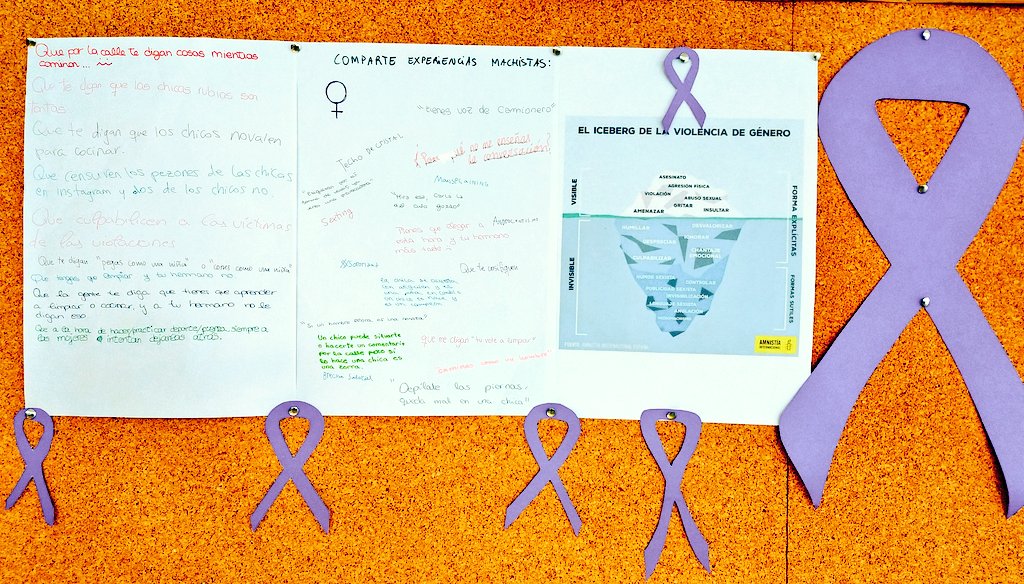 Que por la calle te digan cosas mientras
caminas...
Que te digan que las chicas rubias son
tontas.
Que te digan que los chicos no valen
para cocinar.
Que censuren los pezones de las chicas
en instagram y los de los chicos no
Que culpabilicen a las víctimas
de las violaciones
Que te digan "pegas como una niña" o "corres como una niña"
Que tengas que limpiar y tu hermano no
Que la gente te diga que tienes que aprender
a limpiar o cocinar, y a tu hermano no le
digan eso.
Que a la hora de hacer/practicar deporte/piensa siempre a
las mujeres e intentan dejarlas atrás.
COMPARTE EXPERIENCIAS MACHISTAS:
"tienes voz de camionero"
Techo de cristal
la conversación?
Mansplaining
Sexting
Tienes que llegar a
esta hora y tu hermano
más tarde
Que te cosifiquen
"Si un hombre llora, es una nenaza"
Un chico puede silvarte
o hacerte un comentario
por la calle pero si
lo hace una chica es
una zorra.
Brecha salarial
que me digan "tu vete a limpiar"
"Depílate las piernas,
queda mal en una chica"
EL ICEBERG DE LA VIOLENCIA DE GÉNERO
VISIBLE
ASESINATO
AGRESIÓN FÍSICA
VIOLACIÓN
ABUSO SEXUAL
GRITAR
AMENAZAR
INSULTAR
FORMA EXPLÍCITAS
INVISIBLE
HUMILLAR
DESVALORIZAR
IGNORAR
DESPRECIAR
CHANTAJE
EMOCIONAL
CULPABILIZAR
HUMOR SEXISTA
CONTROLAR
PUBLICIDAD SEXISTA
INVISIBILIZACIÓN
LENGUAJE SEXISTA
ANULACIÓN
FORMAS SUTILES
FUENTE: AMNISTÍA INTERNACIONAL ESPAÑA
AMNISTÍA
INTERNACIONAL